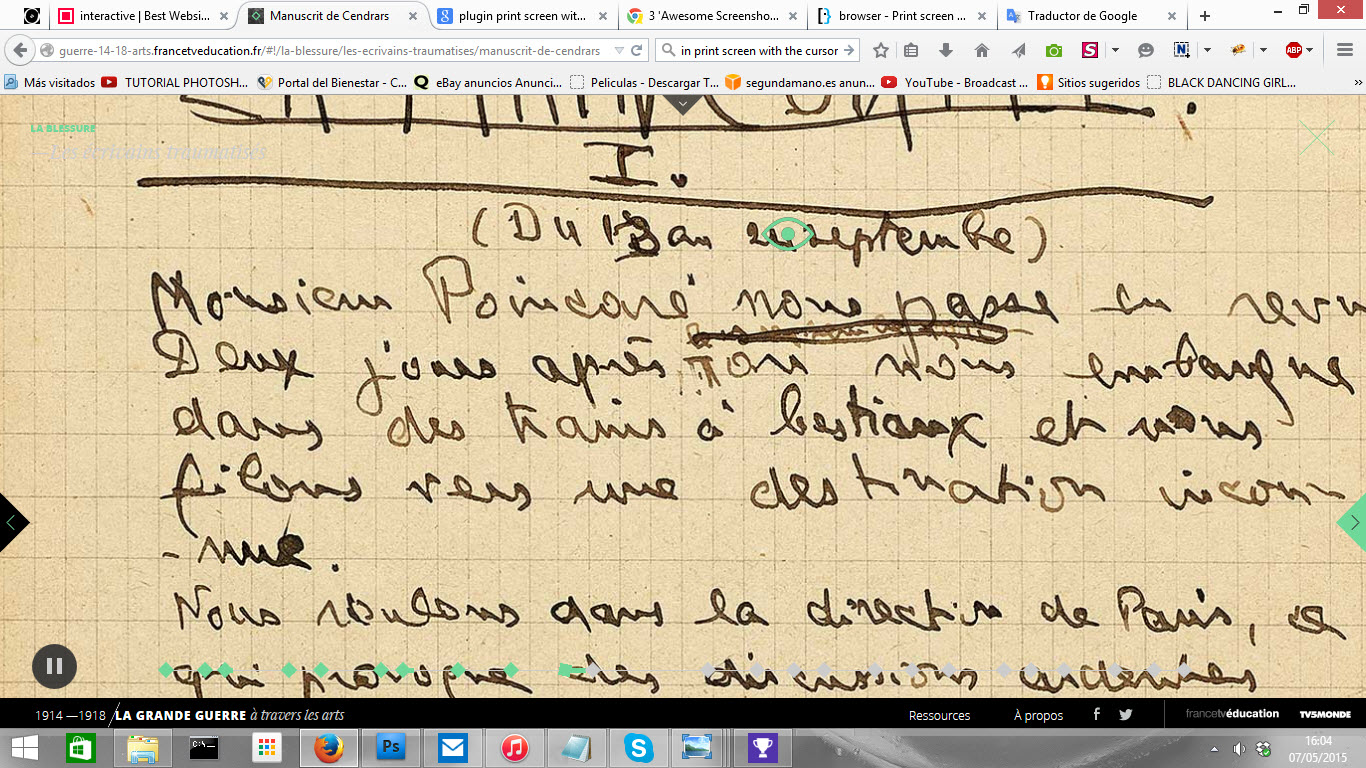 interactive | Best Websi... Manuscrit de Cendrars plugin print screen wit... 3 'Awesome Screensho... browser - Print screen ... Traductor de Google
guerre-14-18-arts.francetveducation.fr/#!/la-blessure/les-ecrivains-traumatises/manuscrit-de-cendrars in print screen with the cursor
Más visitados TUTORIAL PHOTOSH... Portal del Bienestar - C... eBay anuncios Anunci... Peliculas - Descargar T... segundamano.es anun... YouTube - Broadcast ... Sitios sugeridos BLACK DANCING GIRL...
LA BLESSURE
Les écrivains traumatisés
I.
(Du 13 au septembre)
Monsieur Poincaré nous passe en revu
Deux jours après on nous embarque
dans des trains à bestiaux et nous
filons vers une destination incon-
-nue.
Nous roulons dans la direction de Paris, ce
qui provoque des discussions ardentes
1914 — 1918 / LA GRANDE GUERRE à travers les arts Ressources À propos francetvéducation TV5MONDE
Ps
16:04
07/05/2015